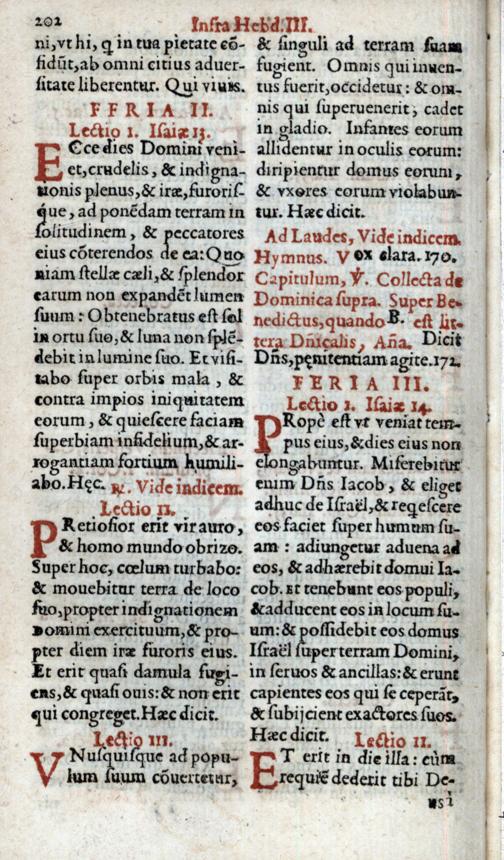 202
Infra Hebd. III.
ni, vt hi, q̃ in tua pietate cõ-
fidũt, ab omni citius aduer-
sitate liberentur. Qui viuis.
FERIA II.
Lectio I. Isaiæ 13.
ECce dies Domini veni-
et, crudelis, & indigna-
tionis plenus, & iræ, furoris-
q́ue, ad ponẽdam terram in
solitudinem, & peccatores
eius cõterendos de ea: Quo
niam stellæ cæli, & splendor
earum non expandẽt lumen
suum: Obtenebratus est sol
in ortu suo, & luna non splẽ-
debit in lumine suo. Et visi-
tabo super orbis mala, &
contra impios iniquitatem
eorum, & quiescere faciam
superbiam infidelium, & ar-
rogantiam fortium humili-
abo. Hęc. ℞. Vide indicem.
Lectio II.
PRetiosior erit vir auro,
& homo mundo obrizo.
Super hoc, cœlum turbabo:
& mouebitur terra de loco
suo, propter indignationem
Domini exercituum, & pro-
pter diem iræ furoris eius.
Et erit quasi damula fugi-
ens, & quasi ouis: & non erit
qui congreget. Hæc dicit.
Lectio III.
VNusquisque ad popu-
lum suum cõuertetur,
& singuli ad terram suam
fugient. Omnis qui inuen-
tus fuerit, occidetur: & om-
nis qui superuenerit, cadet
in gladio. Infantes eorum
allidentur in oculis eorum:
diripientur domus eorum,
& vxores eorum violabun-
tur. Hæc dicit.
Ad Laudes, Vide indicem.
Hymnus. Vox clara. 170.
Capitulum, ℣. Collecta de
Dominica supra. Super Be-
nedictus, quando B. est lit-
tera Dñicalis, Aña. Dicit
Dñs, pęnitentiam agite. 172.
FERIA III.
Lectio I. Isaiæ 14.
PRopè est vt veniat tem-
pus eius, & dies eius non
elongabuntur. Miserebitur
enim Dñs Iacob, & eliget
adhuc de Israël, & reqescere
eos faciet super humum su-
am: adiungetur aduena ad
eos, & adhærebit domui Ia-
cob. Et tenebunt eos populi,
& adducent eos in locum su-
um: & possidebit eos domus
Israël super terram Domini,
in seruos & ancillas: & erunt
capientes eos qui se ceperãt,
& subijcient exactores suos.
Hæc dicit. Lectio II.
ET erit in die illa: cùm
requiẽ dederit tibi De-
us,